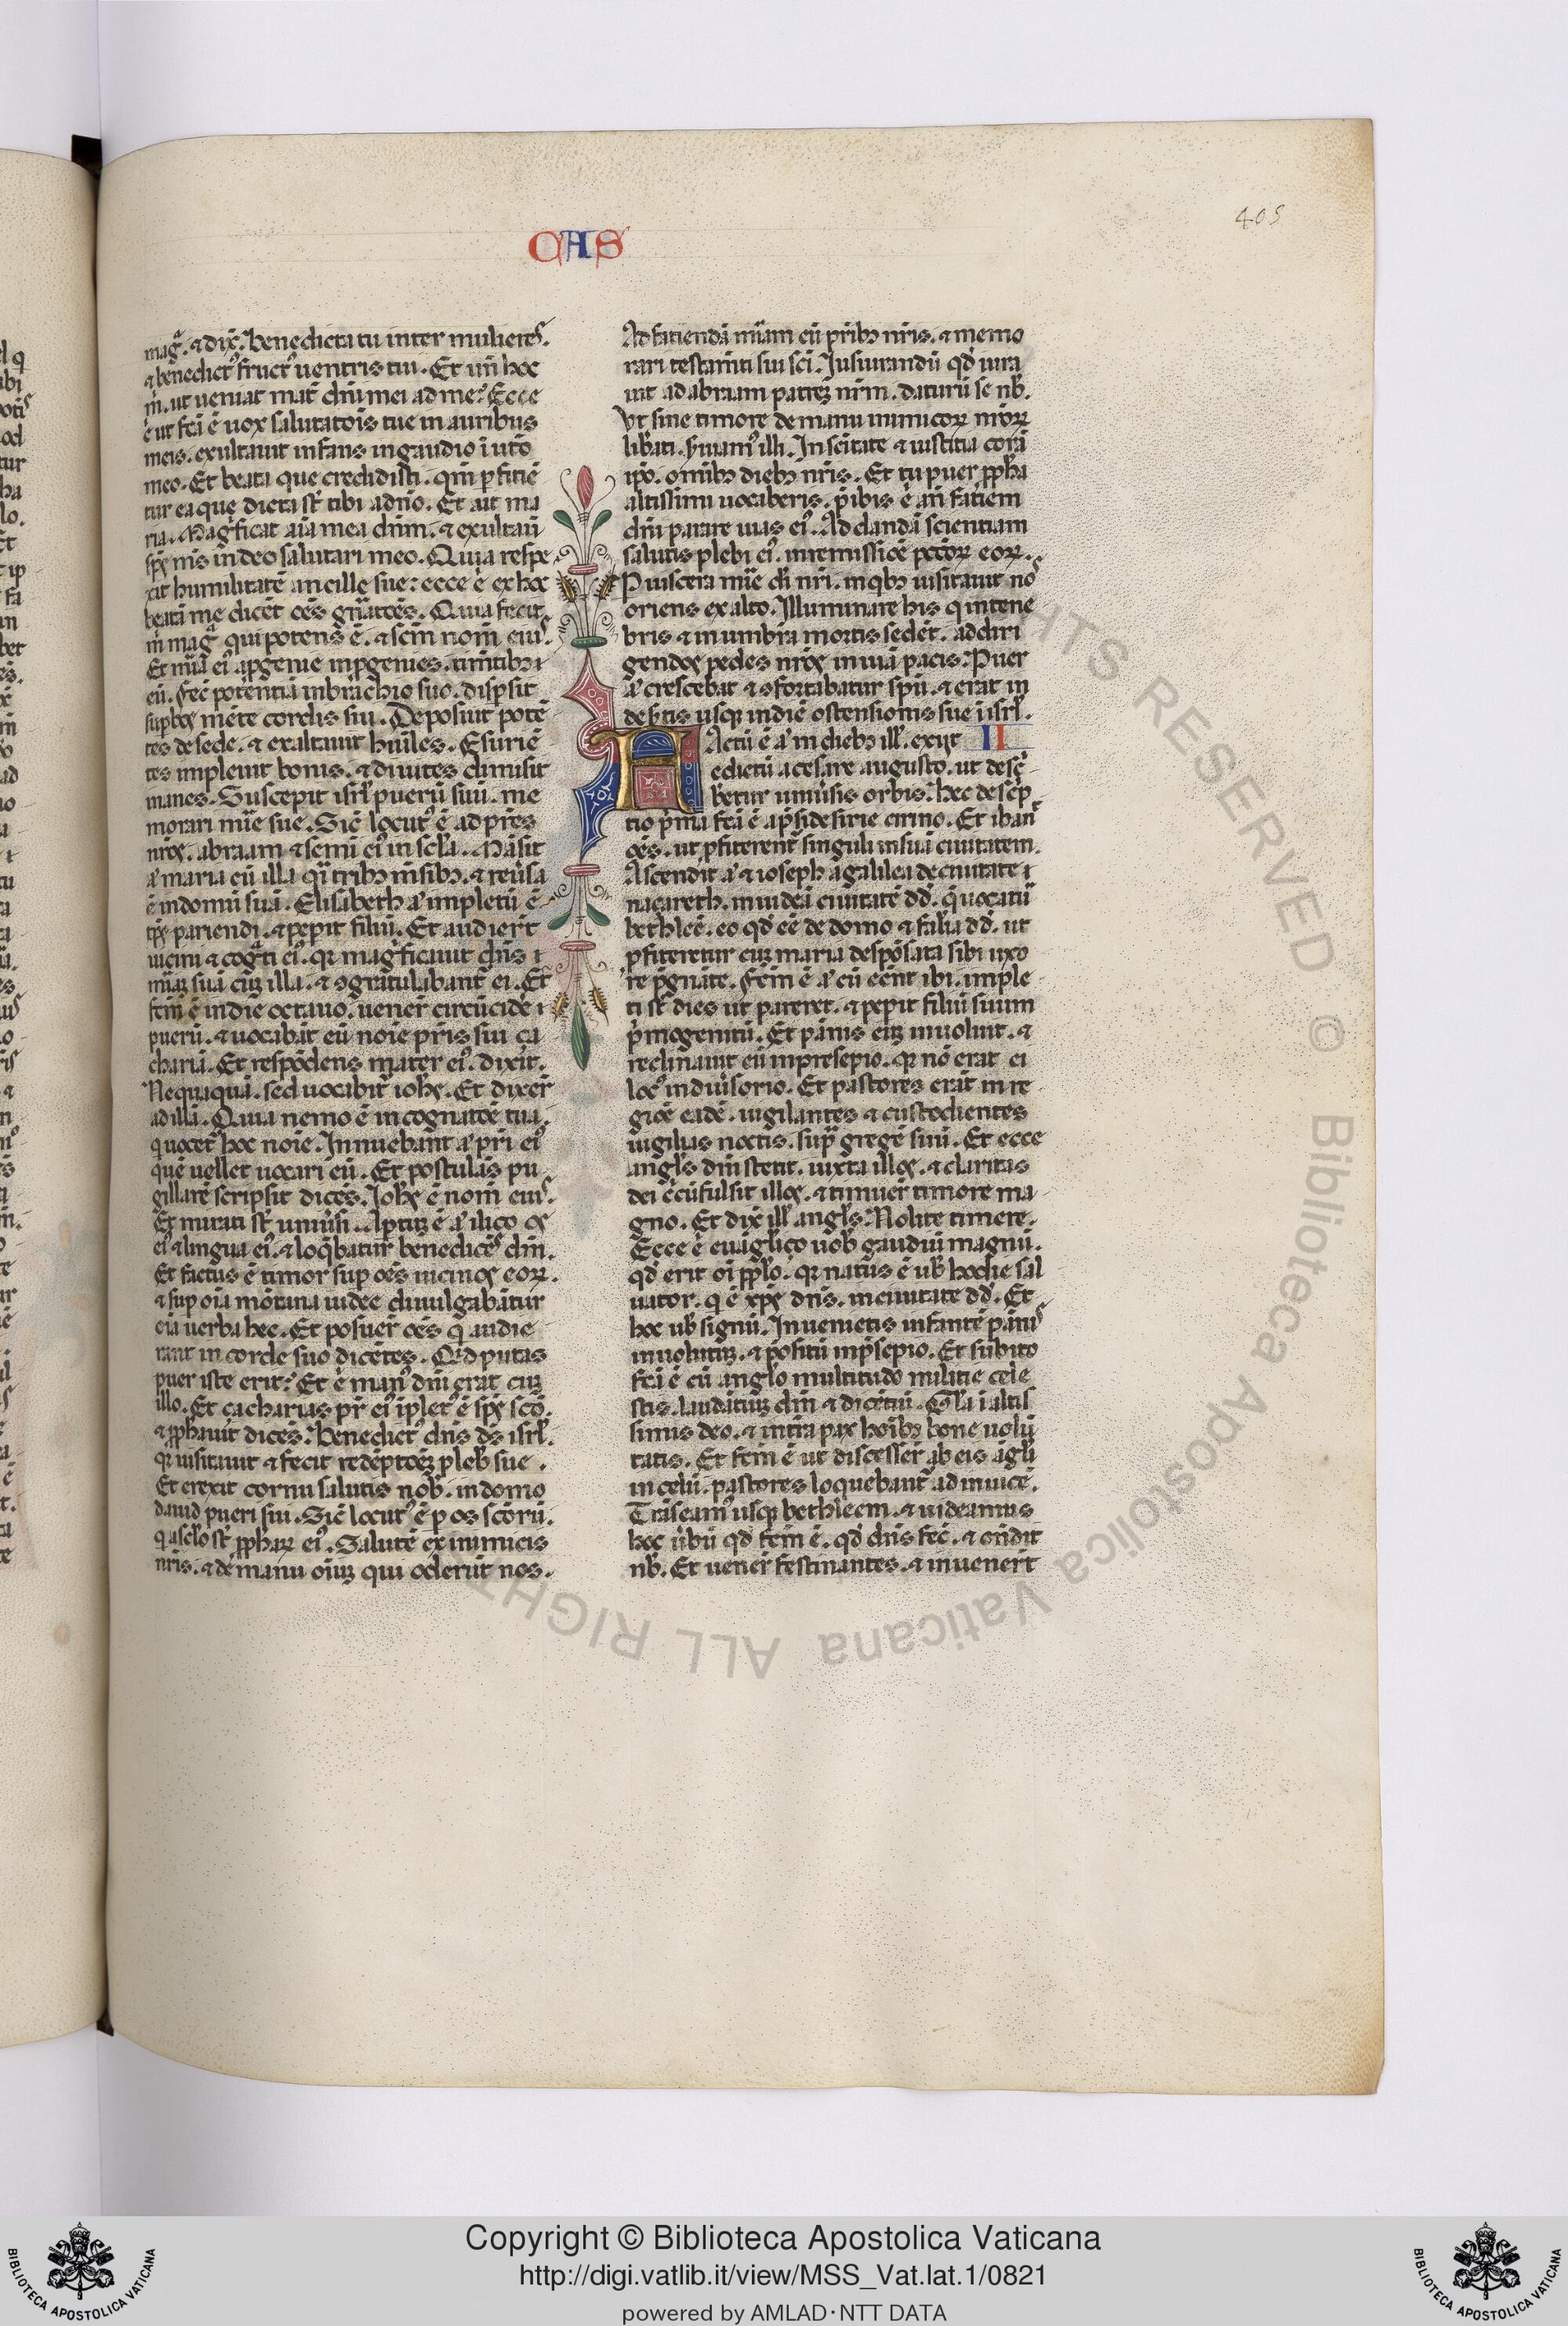 405
CAS
magͣ. ⁊ dix̄. benedicta tu inter mulieres.
⁊ benedict᷒ fruct᷒ uentris tui. Et un̄ hoc
m̄. ut ueniat mat̄ dn̄i mei ad me? Ecce
e̅ ut fc̄a ē uox salutatōis tue in auribus
meis. exultauit infans in gaudio ī ut̄o
meo. Et beata que credidisti. qm̄ ꝑficiē
tur ea que dicta st̄ tibi a dn̄o. Et ait ma
ria. Magͥficat aīa mea dn̄m. ⁊ exultaui
sp̄c m̄s in deo salutari meo. Quia respe
xit humilitatē ancille sue: ecce e̅ ex hoc
beatā me dicēt oēs gn̄atōēs. Quia fecit
m̄ magͣ qui potens ē. ⁊ scm̄ nom̄ eius.
Et mīa ei᷒ a ꝓgenie in ꝓgenies. timētibꝫ
eū. Fec̄ potentiā in brachio suo. disꝑsit
suꝑbos mēte cordis sui. Deposuit potē
tes de sede. ⁊ exaltauit hūiles. Esuriē
tes impleuit bonis. ⁊ diuites dimisit
inanes. Suscepit isrl̄ puerū suū. me
morari mīe sue. Sic̄ locut᷒ ē ad pr̄es
nr̄os. abraam ⁊ semī ei᷒ in scl̄a. Māsit
aͭ maria cū illa q̄i tribꝫ m̄sibꝫ. ⁊ reu̅sa
ē in domū suā. Elisabeth aͭ impletū ē
tp̄s pariendi. ⁊ peꝑit filiū. Et audiert̄
uicini ⁊ cogͣti ei᷒. qꝛ magͥficauit dn̄s
mīaꝫ suā cuꝫ illa. ⁊ ꝯgratulabant̄ ei. Et
fcm̄ ē in die octauo. uener̄ circūcidē
puerū. ⁊ uocabāt eū noīe pr̄is sui ça
chariā. Et respōdens mater ei᷒. dixit.
Nequaquā. sed uocabit̄ ioh̄s. Et dixer̄
ad illā. Quia nemo ē in cognatōe tua.
q uocet̄ hoc noīe. Innuebant aͭ pr̄i ei᷒
quē uellet uocari eū. Et postulās pu
gillarē scripsit dicēs. Ioh̄s ē nom̄ eius.
Et mirati st̄ uniu̅si. Aꝑtuꝫ ē aͭ ilico os
ei᷒ ⁊ lingua ei᷒. ⁊ loq̄batur benedicēs dm̄.
Et factus ē timor suꝑ oēs uicinos eoꝝ.
⁊ suꝑ oīa mōtana iudee diuulgabātur
oīa uerba hec. Et posuer̄ oēs q̄ audie
rant in corde suo dicētes. Qͥd putas
puer iste erit? Et e̅ man᷒ dn̄i erat cuꝫ
illo. Et çacharias pr̄ ei᷒ īplet᷒ ē sp̄u sco̅.
⁊ ꝓph̄auit dicēs. Benedict᷒ dn̄s ds̄ isrl̄.
qꝛ uisitauit ⁊ fecit redēptōeꝫ pleb̄ sue.
Et erexit cornu salutis nob̄. in domo
dauid pueri sui. Sic̄ locut᷒ ē ꝑ os sc̄oꝝ.
q a scl̄o st̄ ꝓph̄aꝝ ei᷒. Salutē ex inimicis
nr̄is. ⁊ de manu oīuꝫ qui oderūt nos.
Ad faciendā mīam cū pr̄ibꝫ nr̄is. ⁊ memo
rari testam̄ti sui sc̄i. Iusiurandū qd̄ iura
uit ad abraam patreꝫ nr̄m. daturū se nb̄.
Vt sine timore de manu inimicoꝝ nr̄oꝝ
lib̄ati. ẜuiam᷒ illi. In sc̄itate ⁊ iustitia corā
ip̄o. omībꝫ diebꝫ nr̄is. Et tu puer ꝓph̄a
altissimi uocaberis. p̄ibis e̅ an̄ faciem
dn̄i parare uias ei᷒. Ad dandā scientiam
salutis plebi ei᷒. in remissiōē pct̄oꝝ eoꝝ.
P uiscera mīe di̅ nr̄i. in qͥbꝫ uisitauit nos
oriens ex alto. Illuminare his q in tene
bris ⁊ in umbra mortis sedēt. ad diri
gendos pedes nr̄os in uiā pacis. Puer
aͭ crescebat ⁊ ꝯfortabatur sp̄u. ⁊ erat in
desertis usqꝫ in diē ostensionis sue ī isrl̄.
Factū ē aͭ in diebꝫ ill̄. exijt II
edictū a cesare augusto. ut descͥ
beretur uniu̅sis orbis. Hec descͥp
tio pͥma fc̄a ē a p̄side sirie cirino. Et ibant
oēs. ut ꝓfiterent̄ singuli in suā ciuitatem.
Ascendit aͭ ⁊ ioseph a galilea de ciuitate
naçareth. in iudeā ciuitatē dd̄. q̄ uocatur
bethleē. eo qd̄ eēt de domo ⁊ fal̄ia dd̄. ut
ꝓfiteretur cuꝫ maria despōsata sibi uxo
re p̄gnāte. Fcm̄ ē aͭ cū eēnt ibi. imple
ti st̄ dies ut pareret. ⁊ peꝑit filiū suum
pͥmogenitū. Et pānis eūꝫ inuoluit. ⁊
reclinauit eū in presepio. qꝛ nō erat ei
loc᷒ in diu̅sorio. Et pastores erāt in re
giōē eadē. uigilantes ⁊ custodientes
uigilias noctis. supͣ gregē suū. Et ecce
angl̄s dn̄i stetit. iuxta illos. ⁊ claritas
dei cͥcūfulsit illos. ⁊ timuer̄ timore ma
gno. Et dix̄ ill̄ angl̄s. Nolite timere.
Ecce e̅ euāgliço uob̄ gaudiū magnū.
qd̄ erit oī ppl̄o. qꝛ natus ē ub̄ hodie sal
uator. q ē xp̄c dn̄s. in ciuitate dd̄. Et
hoc ub̄ signū. Inuenietis infantē pānis
inuolutuꝫ. ⁊ positū in p̄sepio. Et subito
fc̄a ē cū angl̄o multitudo militie cele
stis. laudātiuꝫ dm̄ ⁊ dicētiū. Gl̄a ī altis
simis deo. ⁊ in tͣra pax hoībꝫ bone uolū
tatis. Et fcm̄ ē ut discesser̄ ab eis āgl̄i
in celū. pastores loquebant̄ ad inuicē.
Trāseam᷒ usqꝫ bethleem. ⁊ uideamus
hoc u̅bū qd̄ fcm̄ ē. qd̄ dn̄s fec̄. ⁊ on̄dit
nb̄. Et uener̄ festinantes. ⁊ inuenert̄
ALL RIGHTS RESERVED © Biblioteca Apostolica Vaticana
Copyright © Biblioteca Apostolica Vaticana
http://digi.vatlib.it/view/MSS_Vat.lat.1/0821
powered by AMLAD·NTT DATA
BIBLIOTECA APOSTOLICA VATICANA
BIBLIOTECA APOSTOLICA VATICANA